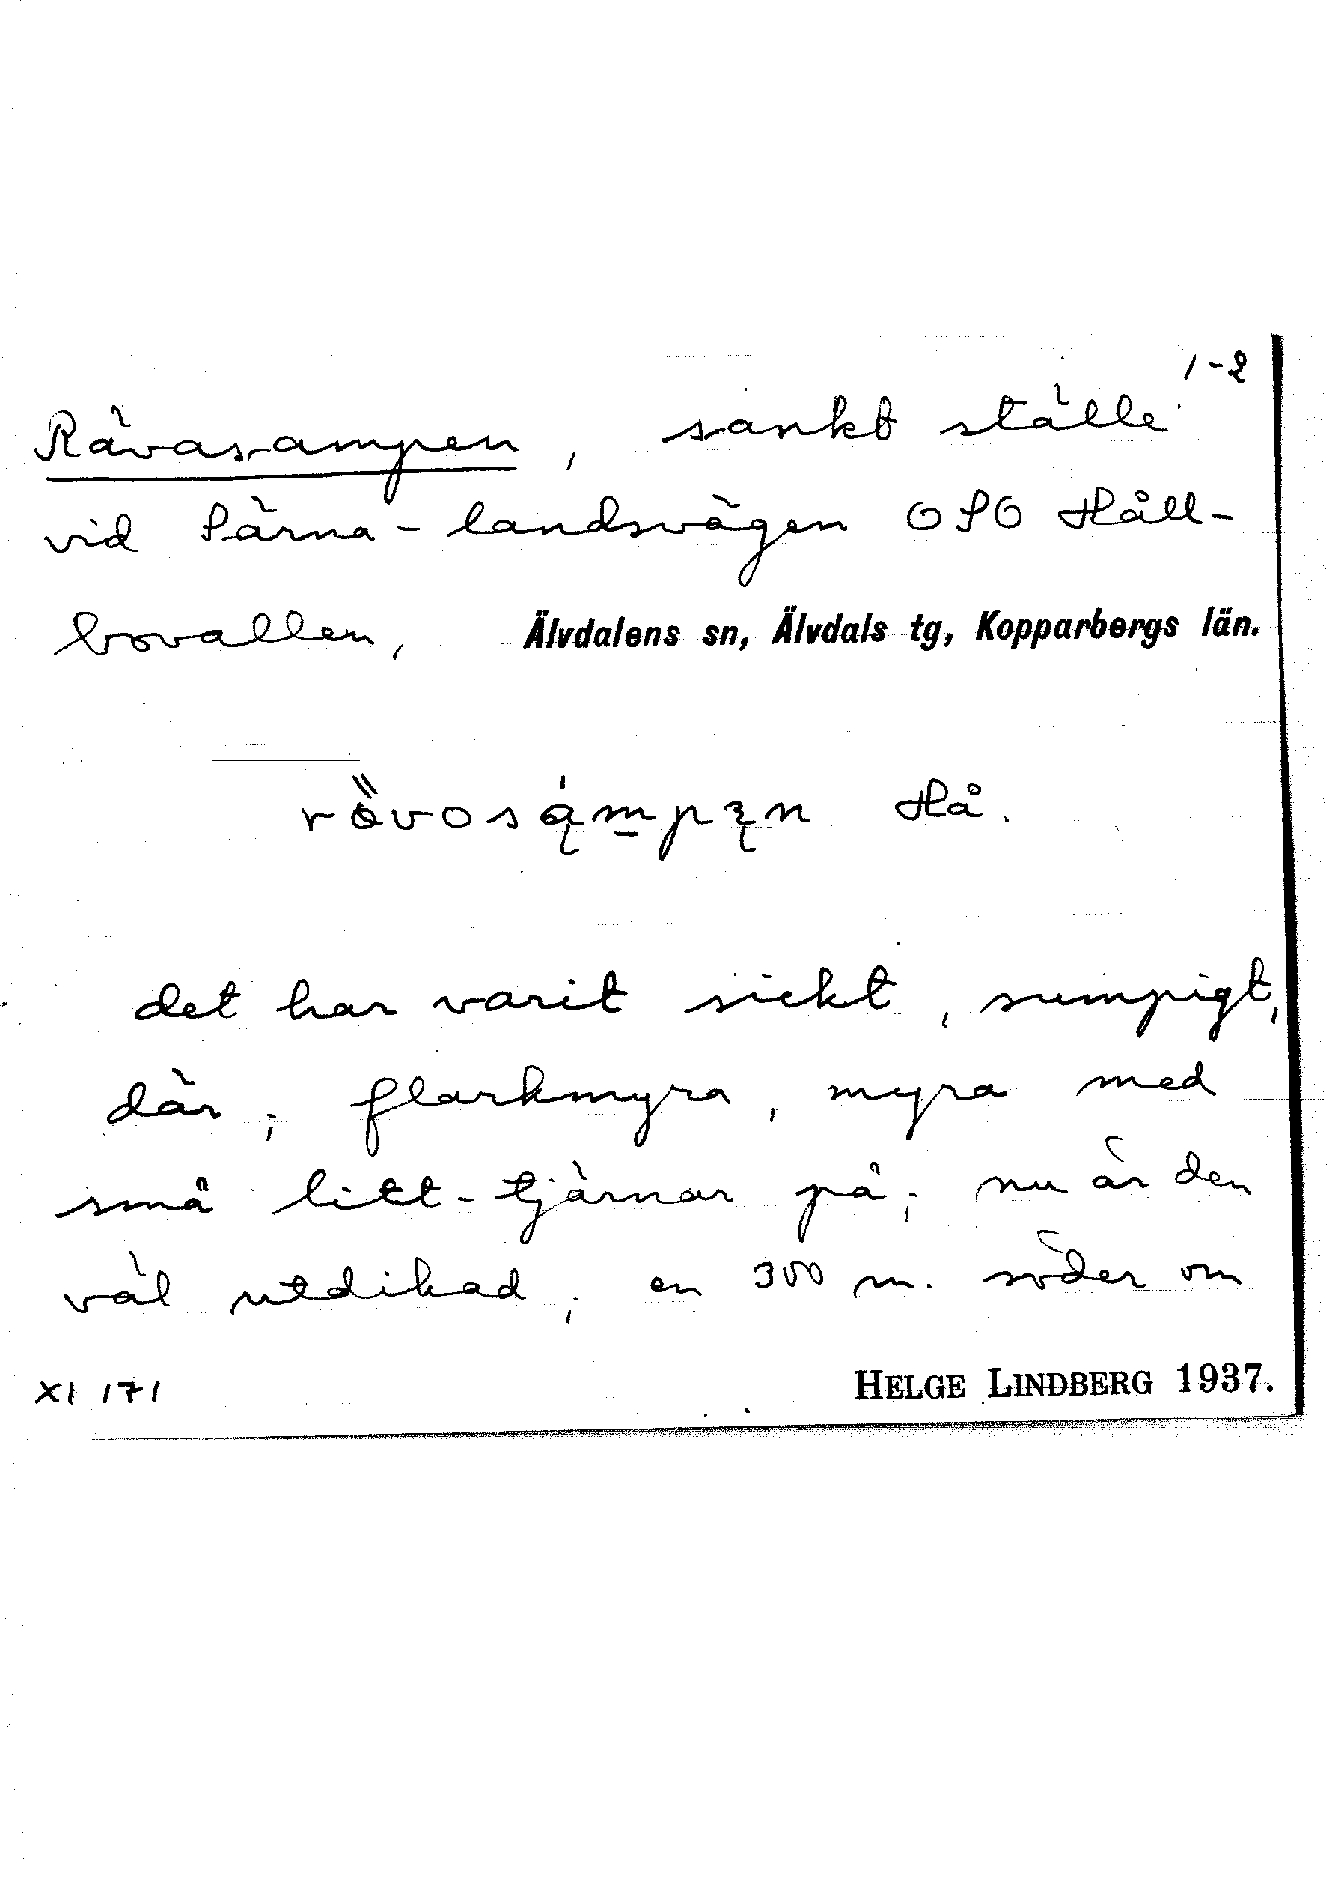 1-2
Rävasampen, sankt ställe
vid Särna-landsvägen OSO Håll-
bovallen, Älvdalens sn, Älvdals tg, Kopparbergs län.
Hå.
det har varit sickt, sumpigt,
där; flarkmyra, myra med
små litt-tjärnar på; nu är den
väl utdikad; en 300 m. söder om
XI 171 HELGE LINDBERG 1937.